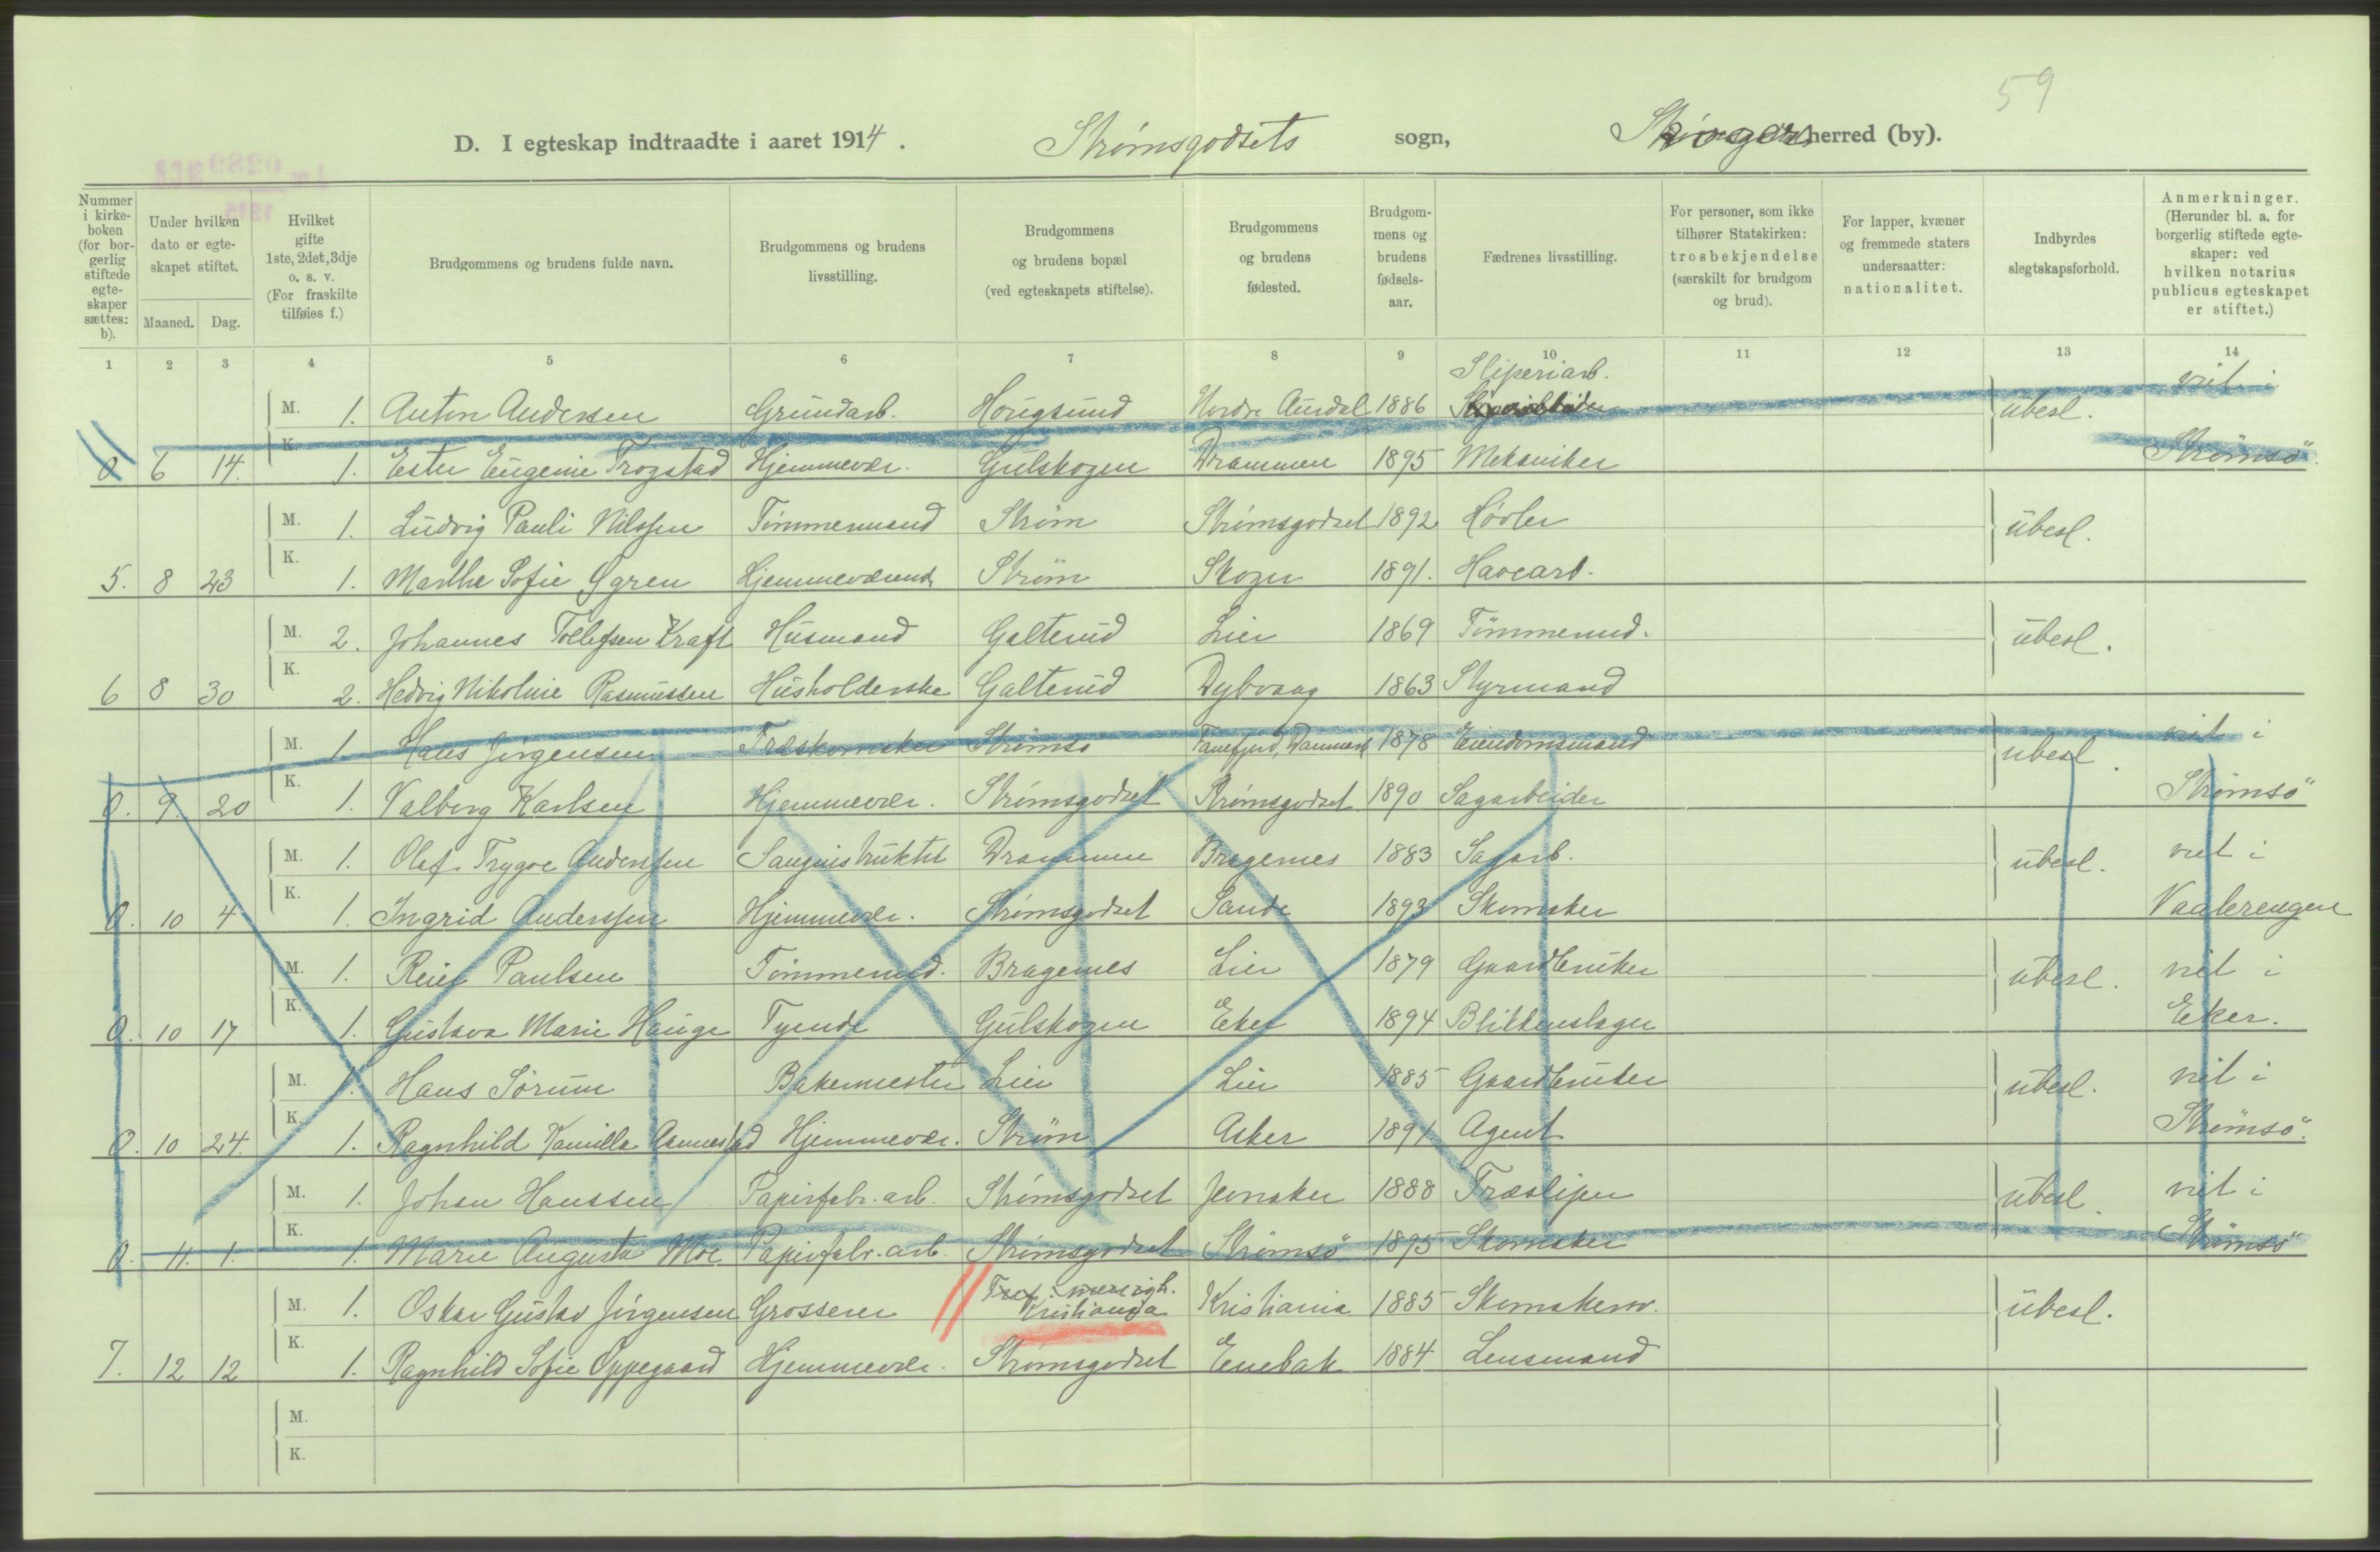 59
D. I egteskap indtraadte i aaret 1914. Strømsgodsets sogn, Skoger herred (by).
Nummer i kirkeboken (for borgerlig stiftede egteskaper sættes: b).
Under hvilken dato er egteskapet stiftet.
Maaned. Dag.
Hvilket gifte 1ste, 2det, 3dje o. s. v. (For fraskilte tilføies f.)
Brudgommens og brudens fulde navn.
Brudgommens og brudens livsstilling.
Brudgommens og brudens bopæl (ved egteskapets stiftelse).
Brudgommens og brudens fødested.
Brudgommens og brudens fødselsaar.
Fædrenes livsstilling.
For personer, som ikke tilhører Statskirken: trosbekjendelse (særskilt for brudgom og brud).
For lapper, kvæner og fremmede staters undersaatter: nationalitet.
Indbyrdes slegtskapsforhold.
Anmerkninger. (Herunder bl. a. for borgerlig stiftede egteskaper: ved hvilken notarius publicus egteskapet er stiftet.)
1 2 3 4 5 6 7 8 9 10 11 12 13 14
Sliperiarb.
M. 1. Anton Andersen Grundarb. Hougsund Nordre Aurdal 1886 ubesl. viet i
0 6 14. K. 1. Ester Eugenie Trogstad Hjemmevær. Gulskogen Drammen 1895 Mekaniker Strømsö.
M. 1. Ludvig Pauli Nilssen Tømmermand Strøm Strømsgodset 1892 Høvler ubesl.
5. 8 23 K. 1. Marthe Sofie Ögren Hjemmeværend. Strøm Skoger 1891. Havearb.
M. 2. Johannes Tollefsen Kraft Husmand Galterud Lier 1869 Tømmermd. ubesl.
6 8 30 K. 2. Hedvig Nikoline Rasmussen Husholderske Galterud Dybvaag 1863 Styrmand
M. 1. Hans Jørgensen Træskomaker Strømsö Danmark 1878 Eiendomsmand ubesl. viet i
0. 9. 20 K. 1. Valborg Karlsen Hjemmevær. Strømsgodset Strømsgodset 1890 Sagarbeider Strømsö
M. 1. Olaf Trygve Anderssen Sanginstruktör Drammen Bragernes 1883 Sagarb. ubesl. viet i
0. 10 4 K. 1. Ingrid Anderssen Hjemmevær. Strømsgodset Sande 1893 Skomaker Vaalerengen
M. 1. Reier Paulsen Tømmermd. Bragernes Lier 1879 Gaardbruker ubesl. viet i
0. 10 17 K. 1. Gustava Marie Hauge Tyende Gulskogen Eker 1894 Blikkenslager Eker.
M. 1. Hans Sørum Bakermester Lier Lier 1885 Gaardbruker ubesl. viet i
0. 10 24. K. 1. Ragnhild Kamilla Aannestad Hjemmevær. Strøm Asker 1891 Agent Strømsö.
M. 1. Johan Hanssen Papirfabr. arb. Strømsgodset Jevnaker 1888 Træsliper ubesl. viet i
0. 11. 1. K. 1. Marie Augusta Moe Papirfabr. arb. Strømsgodset Strømsö 1895 Skomaker Strømsö
M. 1. Oskar Gustav Jørgensen Grosserer Kristiania Kristiania 1885 Skomakersv. ubesl.
7. 12 12 K. 1. Ragnhild Sofie Oppegaard Hjemmevær. Strømsgodset Enebak 1884 Lensmand
M.
K.